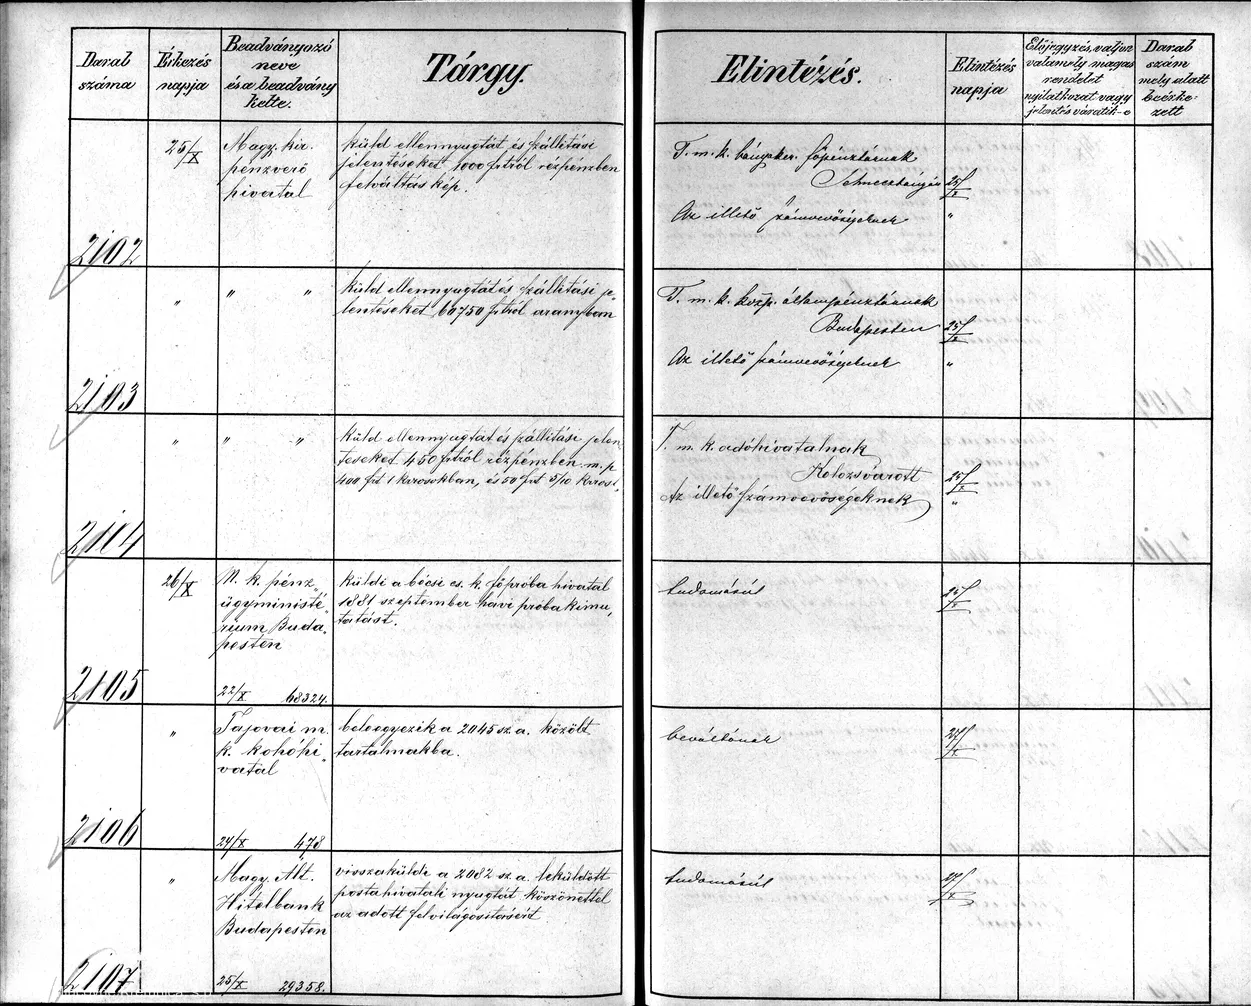 Darab
száma
Érkezés
napja
Beadványozó
neve
és a beadvány
kelte.
Tárgy.
Elintézés.
Elintézés
napja
Előjegyzés, valjon
valamely magas
rendelet
nyilatkozat vagy
jelentés váratik-e
Darab
szám
mely alatt
beérke-
zett
2102
25/X
Magy. kir.
pénzverő
hivatal
küld ellennyugtát és szállítási
jelentéseket 1000 frtról rézpénzben
felváltás kép.
T. m. k. bányaker. főpénztárnak
Selmeczbányán
25/X
Az illető számvevőségeknek
"
2103
"
"
"
küld ellennyugtát és szállítási je„
lentéseket 60750 frtról aranyban
T. m. k. közp. állampénztárnak
Budapesten
25/X
Az illető számvevőségeknek
"
2104
"
"
"
küld ellennyugtát és szállítási jelen„
téseket 450 frtról rézpénzben m. p.
400 frt 1 krosokban, és 50 frt 5/10 kros.
T. m. k. adóhivatalnak
Kolozsvárott
25/X
Az illető számvevőségeknek
"
2105
26/X
M. k. pénz„
ügyministé„
rium Buda„
pesten
22/X 68324.
küldi a bécsi cs. k. főpróba hivatal
1881 szeptember havi próba kimu„
tatást.
tudomásúl
2106
"
Tajovai m.
k. kohohi„
vatal
24/X 478
beleegyezik a 2045 sz. a. közölt
tartalmakba.
beváltónak
27/X
2107
"
Magy. Ált.
Hitelbank
Budapesten
25/X 29358.
visszaküldi a 2082 sz. a. leküldött
postahivatali nyugtát köszönettel
az adott felvilágosításért
tudomásúl
27/X